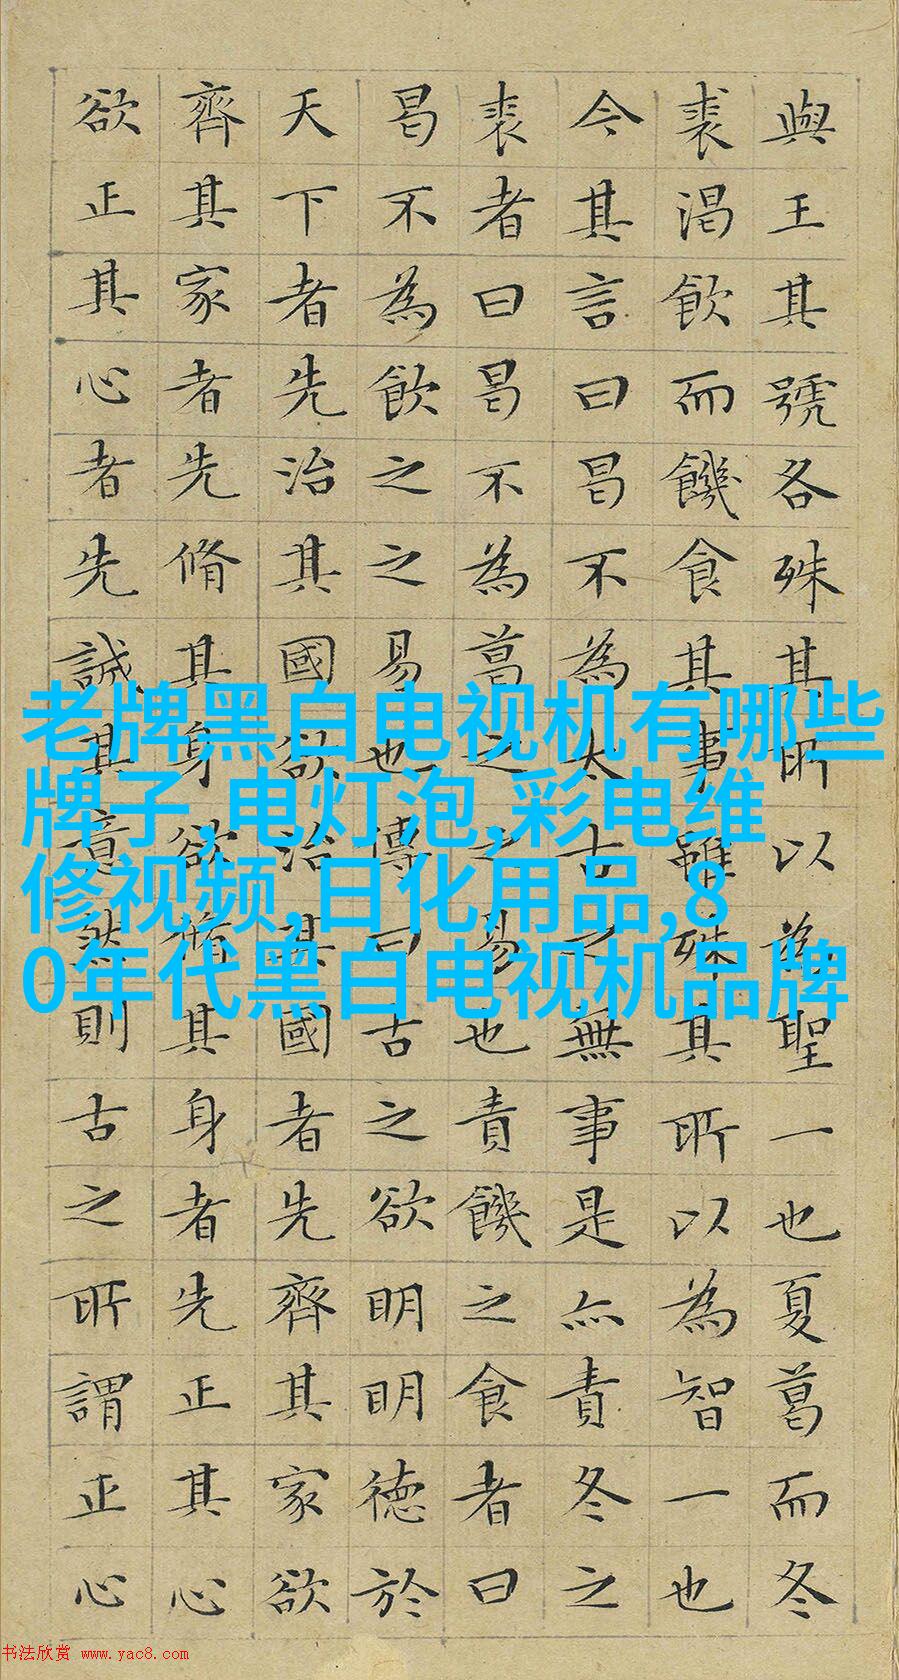 與王其號各殊其所以為聖一也夏葛而冬
裘渴飲而饑食其事雖殊其所以為智一也
今其言曰曷不為太古之無事是亦責冬之
裘者曰曷不為葛之之易也責饑之食者曰
曷不為飲之之易也傳曰古之欲明明德於
天下者先治其國欲治其國者先齊其家欲
齊其家者先脩其身欲脩其身者先正其心
欲正其心者先誠其意然則古之所謂正心
老牌黑白电视机有哪些
牌子,电灯泡,彩电维
修视频,日化用品,8
0年代黑白电视机品牌
书法欣赏 www.yac8.com